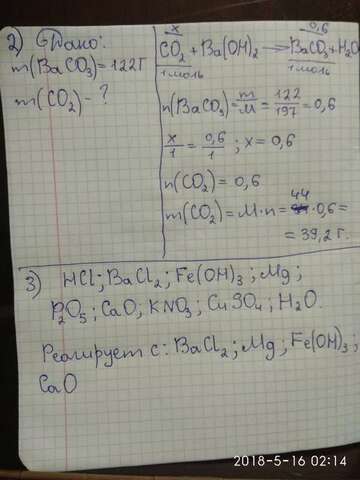 2) Дано:
m(BaCO₃)=122г
m(CO₂)-?
x 0,6
CO₂+Ba(OH)₂→BaCO₃+H₂O
1моль 1моль
n(BaCO₃)=m/M=122/197=0,6
x/1=0,6/1; x=0,6
n(CO₂)=0,6
m(CO₂)=M·n=44·0,6=
=39,2г.
3) HCl; BaCl₂; Fe(OH)₃; Mg;
P₂O₅; CaO; KNO₃; CuSO₄; H₂O.
Реагирует с: BaCl₂; Mg; Fe(OH)₃;
CaO
2018-5-16 02:14